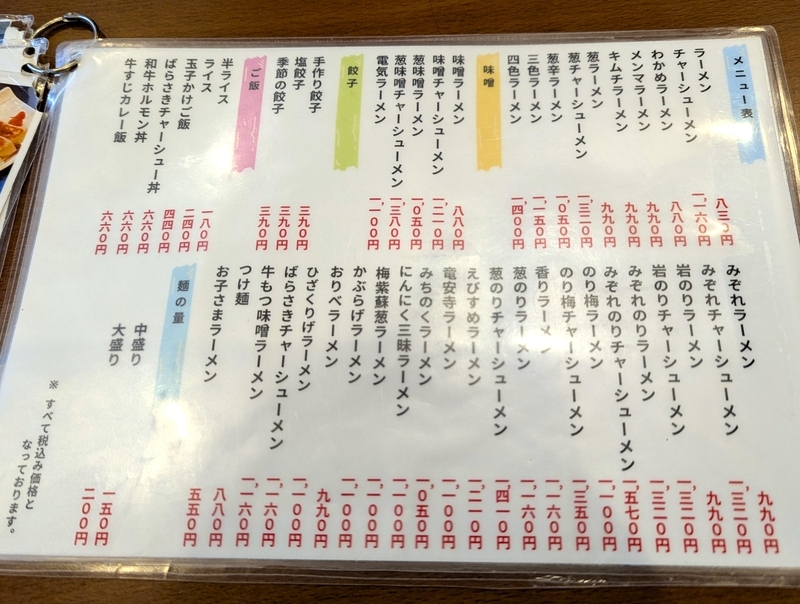 メニュー表
ラーメン 八三〇円
チャーシューメン 一,一六〇円
わかめラーメン 八八〇円
メンマラーメン 九九〇円
キムチラーメン 九九〇円
葱ラーメン 九九〇円
葱チャーシューメン 一,三二〇円
葱辛ラーメン 一,〇五〇円
三色ラーメン 一,一五〇円
四色ラーメン 一,一四〇円
味噌
味噌ラーメン 八八〇円
味噌チャーシューメン 一,二一〇円
葱味噌ラーメン 一,〇五〇円
葱味噌チャーシューメン 一,三八〇円
電気ラーメン 一,一〇〇円
餃子
手作り餃子 三九〇円
塩餃子 三九〇円
季節の餃子 三九〇円
ご飯
半ライス 一八〇円
ライス 二四〇円
玉子かけご飯 四四〇円
ばらさきチャーシュー丼 六六〇円
和牛ホルモン丼 六六〇円
牛すじカレー飯 六六〇円
みぞれラーメン 九九〇円
みぞれチャーシューメン 一,三二〇円
岩のりラーメン 九九〇円
岩のりチャーシューメン 一,三二〇円
みぞれのりラーメン 一,三二〇円
みぞれのりチャーシューメン 一,五七〇円
のり梅ラーメン 一,一〇〇円
のり梅チャーシューメン 一,三五〇円
香りラーメン 一,一六〇円
葱のりラーメン 一,一六〇円
葱のりチャーシューメン 一,四一〇円
えびすめラーメン 一,二一〇円
竜安寺ラーメン 一,一〇〇円
みちのくラーメン 一,〇五〇円
にんにく三昧ラーメン 一,一〇〇円
梅紫蘇葱ラーメン 一,一〇〇円
かぶらげラーメン 一,一〇〇円
おりべラーメン 九九〇円
ひざくりげラーメン 一,一〇〇円
ばらさきチャーシューメン 一,一六〇円
牛もつ味噌ラーメン 一,一六〇円
つけ麺 八八〇円
お子さまラーメン 五五〇円
麺の量
中盛り 一五〇円
大盛り 二〇〇円
※ すべて税込み価格と
なっております。